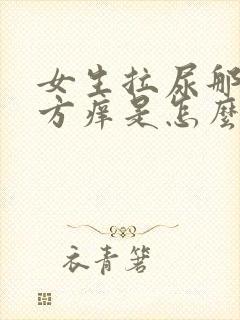 女生拉尿那
方痒是怎麼
衣青箬